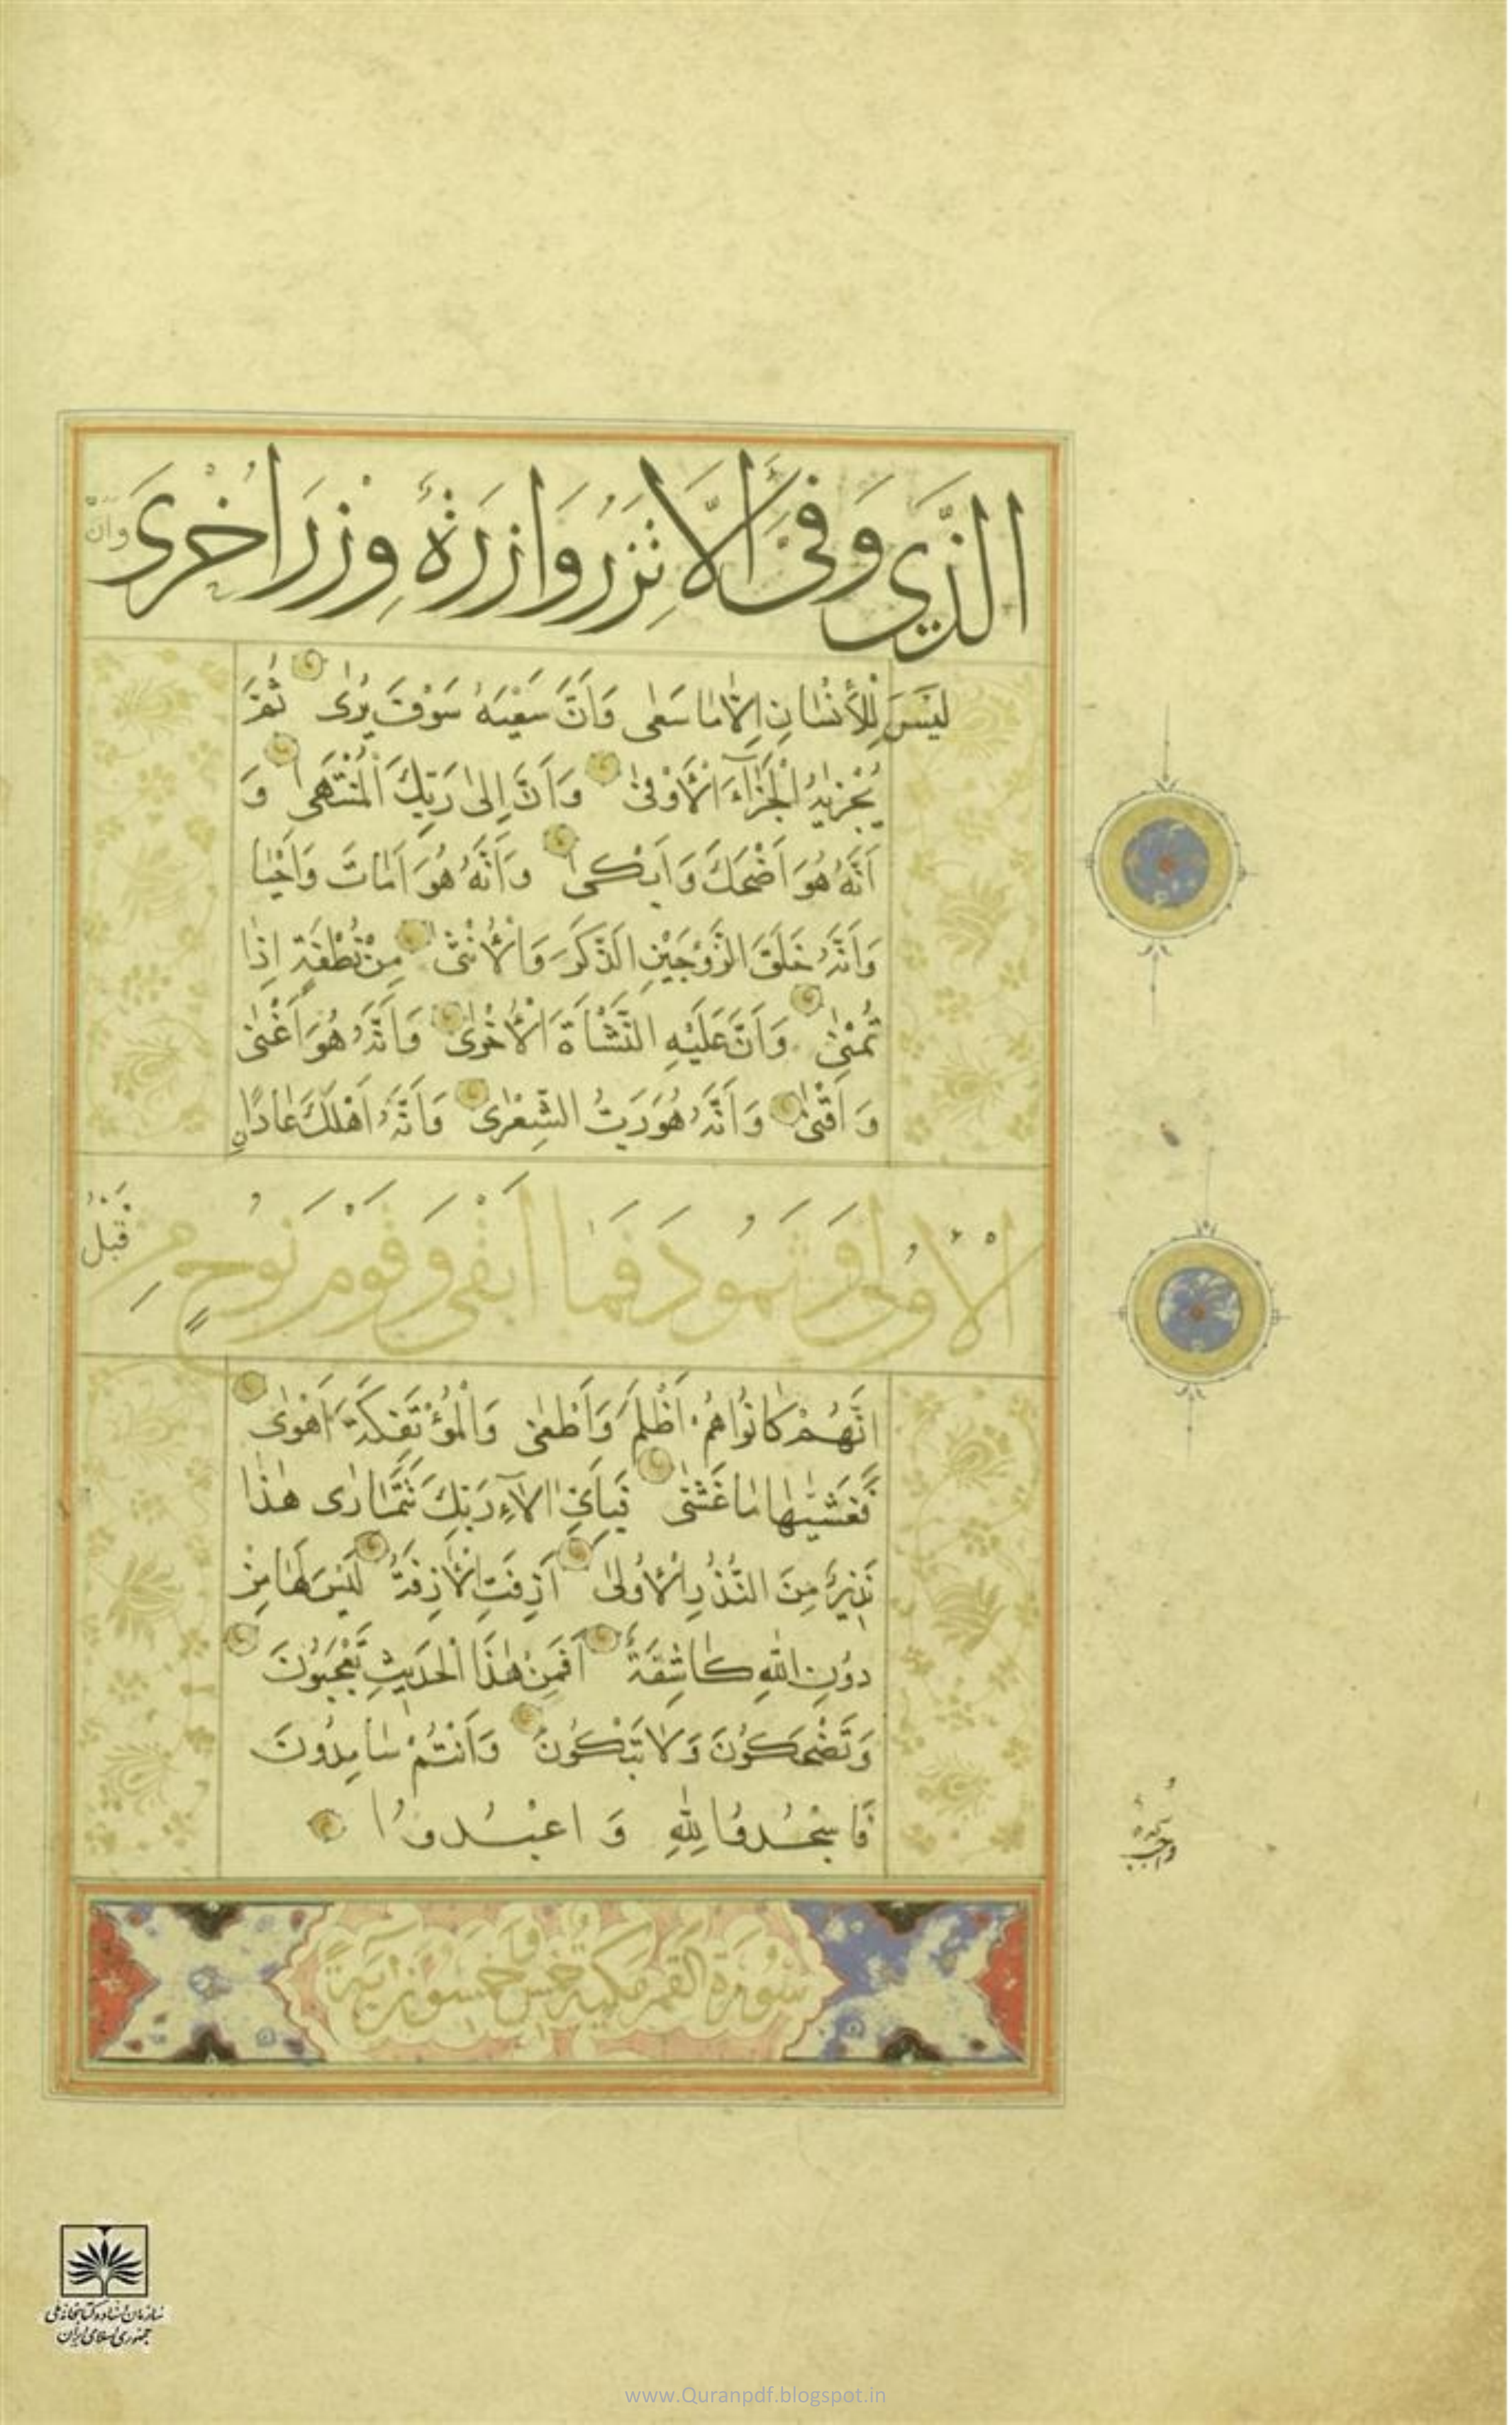 الَّذِي وَفَّىٰ اَلَّا تَزِرُ وَازِرَةٌ وِزْرَ اُخْرَىٰ وَاَنْ
لَيْسَ لِلْاِنْسٰانِ اِلّٰا مٰا سَعٰى وَاَنَّ سَعْيَهُ سَوْفَ يُرٰى ثُمَّ
يُجْزٰيهُ الْجَزٰآءَ الْاَوْفىٰ وَاَنَّ اِلىٰ رَبِّكَ الْمُنْتَهىٰ وَ
اَنَّهُ هُوَ اَضْحَكَ وَاَبْكىٰ وَاَنَّهُ هُوَ اَمٰاتَ وَاَحْيٰا
وَاَنَّهُ خَلَقَ الزَّوْجَيْنِ الذَّكَرَ وَالْاُنْثىٰ مِنْ نُطْفَةٍ اِذٰا
تُمْنىٰ وَاَنَّ عَلَيْهِ النَّشْاَةَ الْاُخْرىٰ وَاَنَّهُ هُوَ اَغْنىٰ
وَ اَقْنىٰ وَاَنَّهُ هُوَ رَبُّ الشِّعْرٰى وَاَنَّهُ اَهْلَكَ عٰادًانِ
الْاُولىٰ وَثَمُودَ فَمٰا اَبْقىٰ وَقَوْمَ نُوحٍ مِنْ قَبْلُ
اِنَّهُمْ كٰانُوا هُمْ اَظْلَمَ وَاَطْغىٰ وَالْمُؤْتَفِكَةَ اَهْوىٰ
فَغَشّٰيهٰا مٰا غَشّٰى فَبِاَيِّ اٰلآءِ رَبِّكَ تَتَمٰارٰى هٰذٰا
نَذِيرٌ مِنَ النُّذُرِ الْاُولىٰ اَزِفَتِ الْاٰزِفَةُ لَيْسَ لَهٰا مِنْ
دُونِ اللّٰهِ كٰاشِفَةٌ اَفَمِنْ هٰذَا الْحَدِيثِ تَعْجَبُونَ
وَتَضْحَكُونَ وَلٰا تَبْكُونَ وَاَنْتُمْ سٰامِدُونَ
فَاسْجُدُوا لِلّٰهِ وَ اعْبُدُوا
سُورَةُ القَمَرِ مَكِيَّةٌ خَمْسٌ وَخَمْسُونَ اٰيَةً
سجدهٔ
واجب
سازمان اسناد و کتابخانه ملی
جمهوری اسلامی ایران
www.Quranpdf.blogspot.in